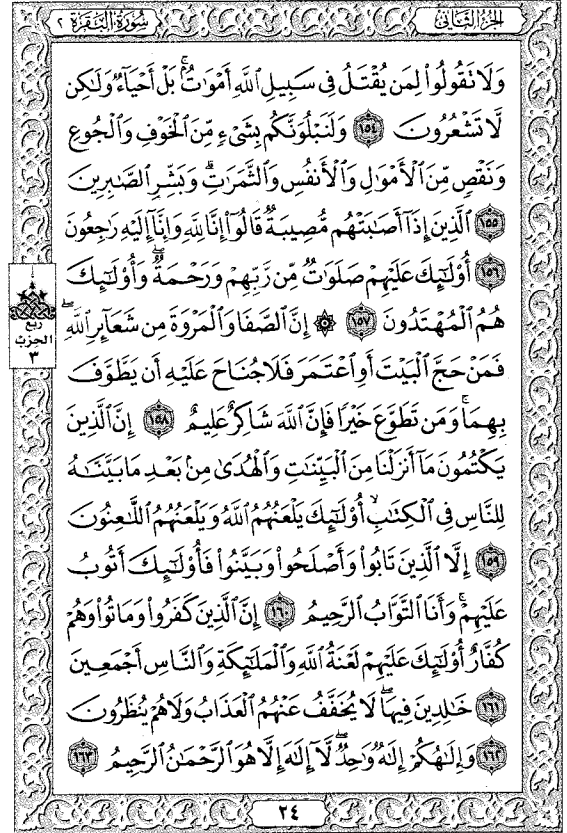 الجزء الثاني
سورة البقرة ٢
وَلَا تَقُولُوا۟ لِمَن يُقْتَلُ فِى سَبِيلِ ٱللَّهِ أَمْوَٰتٌۢ ۚ بَلْ أَحْيَآءٌ وَلَٰكِن
لَّا تَشْعُرُونَ ١٥٤ وَلَنَبْلُوَنَّكُم بِشَىْءٍ مِّنَ ٱلْخَوْفِ وَٱلْجُوعِ
وَنَقْصٍ مِّنَ ٱلْأَمْوَٰلِ وَٱلْأَنفُسِ وَٱلثَّمَرَٰتِ ۗ وَبَشِّرِ ٱلصَّٰبِرِينَ
١٥٥ ٱلَّذِينَ إِذَآ أَصَٰبَتْهُم مُّصِيبَةٌ قَالُوٓا۟ إِنَّا لِلَّهِ وَإِنَّآ إِلَيْهِ رَٰجِعُونَ
١٥٦ أُو۟لَٰٓئِكَ عَلَيْهِمْ صَلَوَٰتٌ مِّن رَّبِّهِمْ وَرَحْمَةٌ ۖ وَأُو۟لَٰٓئِكَ
هُمُ ٱلْمُهْتَدُونَ ١٥٧ ۞ إِنَّ ٱلصَّفَا وَٱلْمَرْوَةَ مِن شَعَآئِرِ ٱللَّهِ ۖ
فَمَنْ حَجَّ ٱلْبَيْتَ أَوِ ٱعْتَمَرَ فَلَا جُنَاحَ عَلَيْهِ أَن يَطَّوَّفَ
بِهِمَا ۚ وَمَن تَطَوَّعَ خَيْرًا فَإِنَّ ٱللَّهَ شَاكِرٌ عَلِيمٌ ١٥٨ إِنَّ ٱلَّذِينَ
يَكْتُمُونَ مَآ أَنزَلْنَا مِنَ ٱلْبَيِّنَٰتِ وَٱلْهُدَىٰ مِنۢ بَعْدِ مَا بَيَّنَّٰهُ
لِلنَّاسِ فِى ٱلْكِتَٰبِ ۙ أُو۟لَٰٓئِكَ يَلْعَنُهُمُ ٱللَّهُ وَيَلْعَنُهُمُ ٱللَّٰعِنُونَ
١٥٩ إِلَّا ٱلَّذِينَ تَابُوا۟ وَأَصْلَحُوا۟ وَبَيَّنُوا۟ فَأُو۟لَٰٓئِكَ أَتُوبُ
عَلَيْهِمْ ۚ وَأَنَا ٱلتَّوَّابُ ٱلرَّحِيمُ ١٦٠ إِنَّ ٱلَّذِينَ كَفَرُوا۟ وَمَاتُوا۟ وَهُمْ
كُفَّارٌ أُو۟لَٰٓئِكَ عَلَيْهِمْ لَعْنَةُ ٱللَّهِ وَٱلْمَلَٰٓئِكَةِ وَٱلنَّاسِ أَجْمَعِينَ
١٦١ خَٰلِدِينَ فِيهَا ۖ لَا يُخَفَّفُ عَنْهُمُ ٱلْعَذَابُ وَلَا هُمْ يُنظَرُونَ
١٦٢ وَإِلَٰهُكُمْ إِلَٰهٌ وَٰحِدٌ ۖ لَّآ إِلَٰهَ إِلَّا هُوَ ٱلرَّحْمَٰنُ ٱلرَّحِيمُ ١٦٣
ربع
الحزب
٣
٢٤